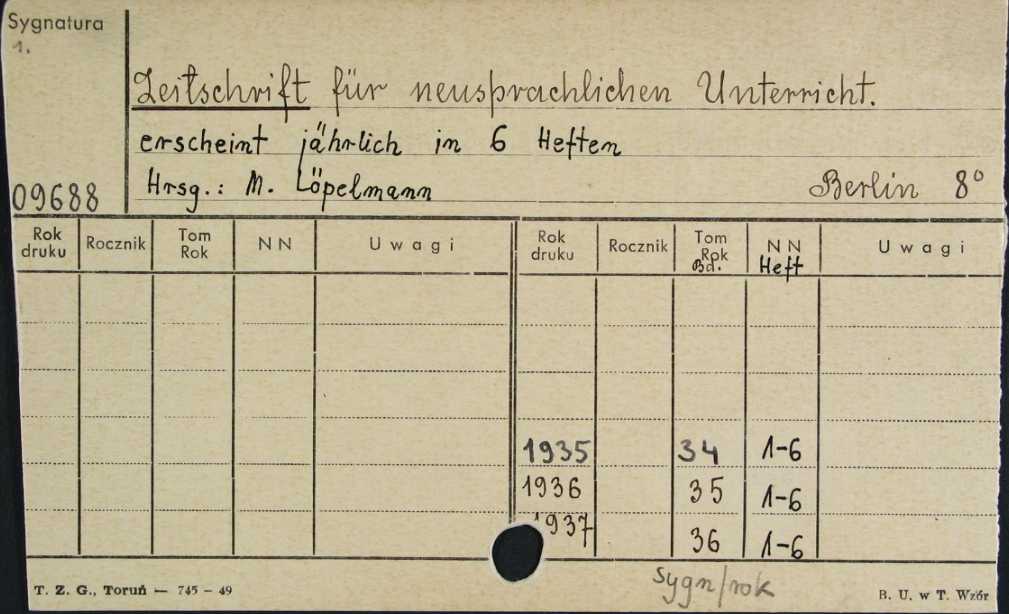 Sygnatura
1.
Zeitschrift für neusprachlichen Unterricht.
erscheint jährlich in 6 Heften
09688 Hrsg.: M. Löpelmann Berlin 8°
Rok druku Rocznik Tom Rok N N U w a g i Rok druku Rocznik Tom Rok Bd. N N Heft U w a g i
1935 34 1-6
1936 35 1-6
1937 36 1-6
sygn/rok
T. Z. G., Toruń — 745 - 49 B. U. w T. Wzór